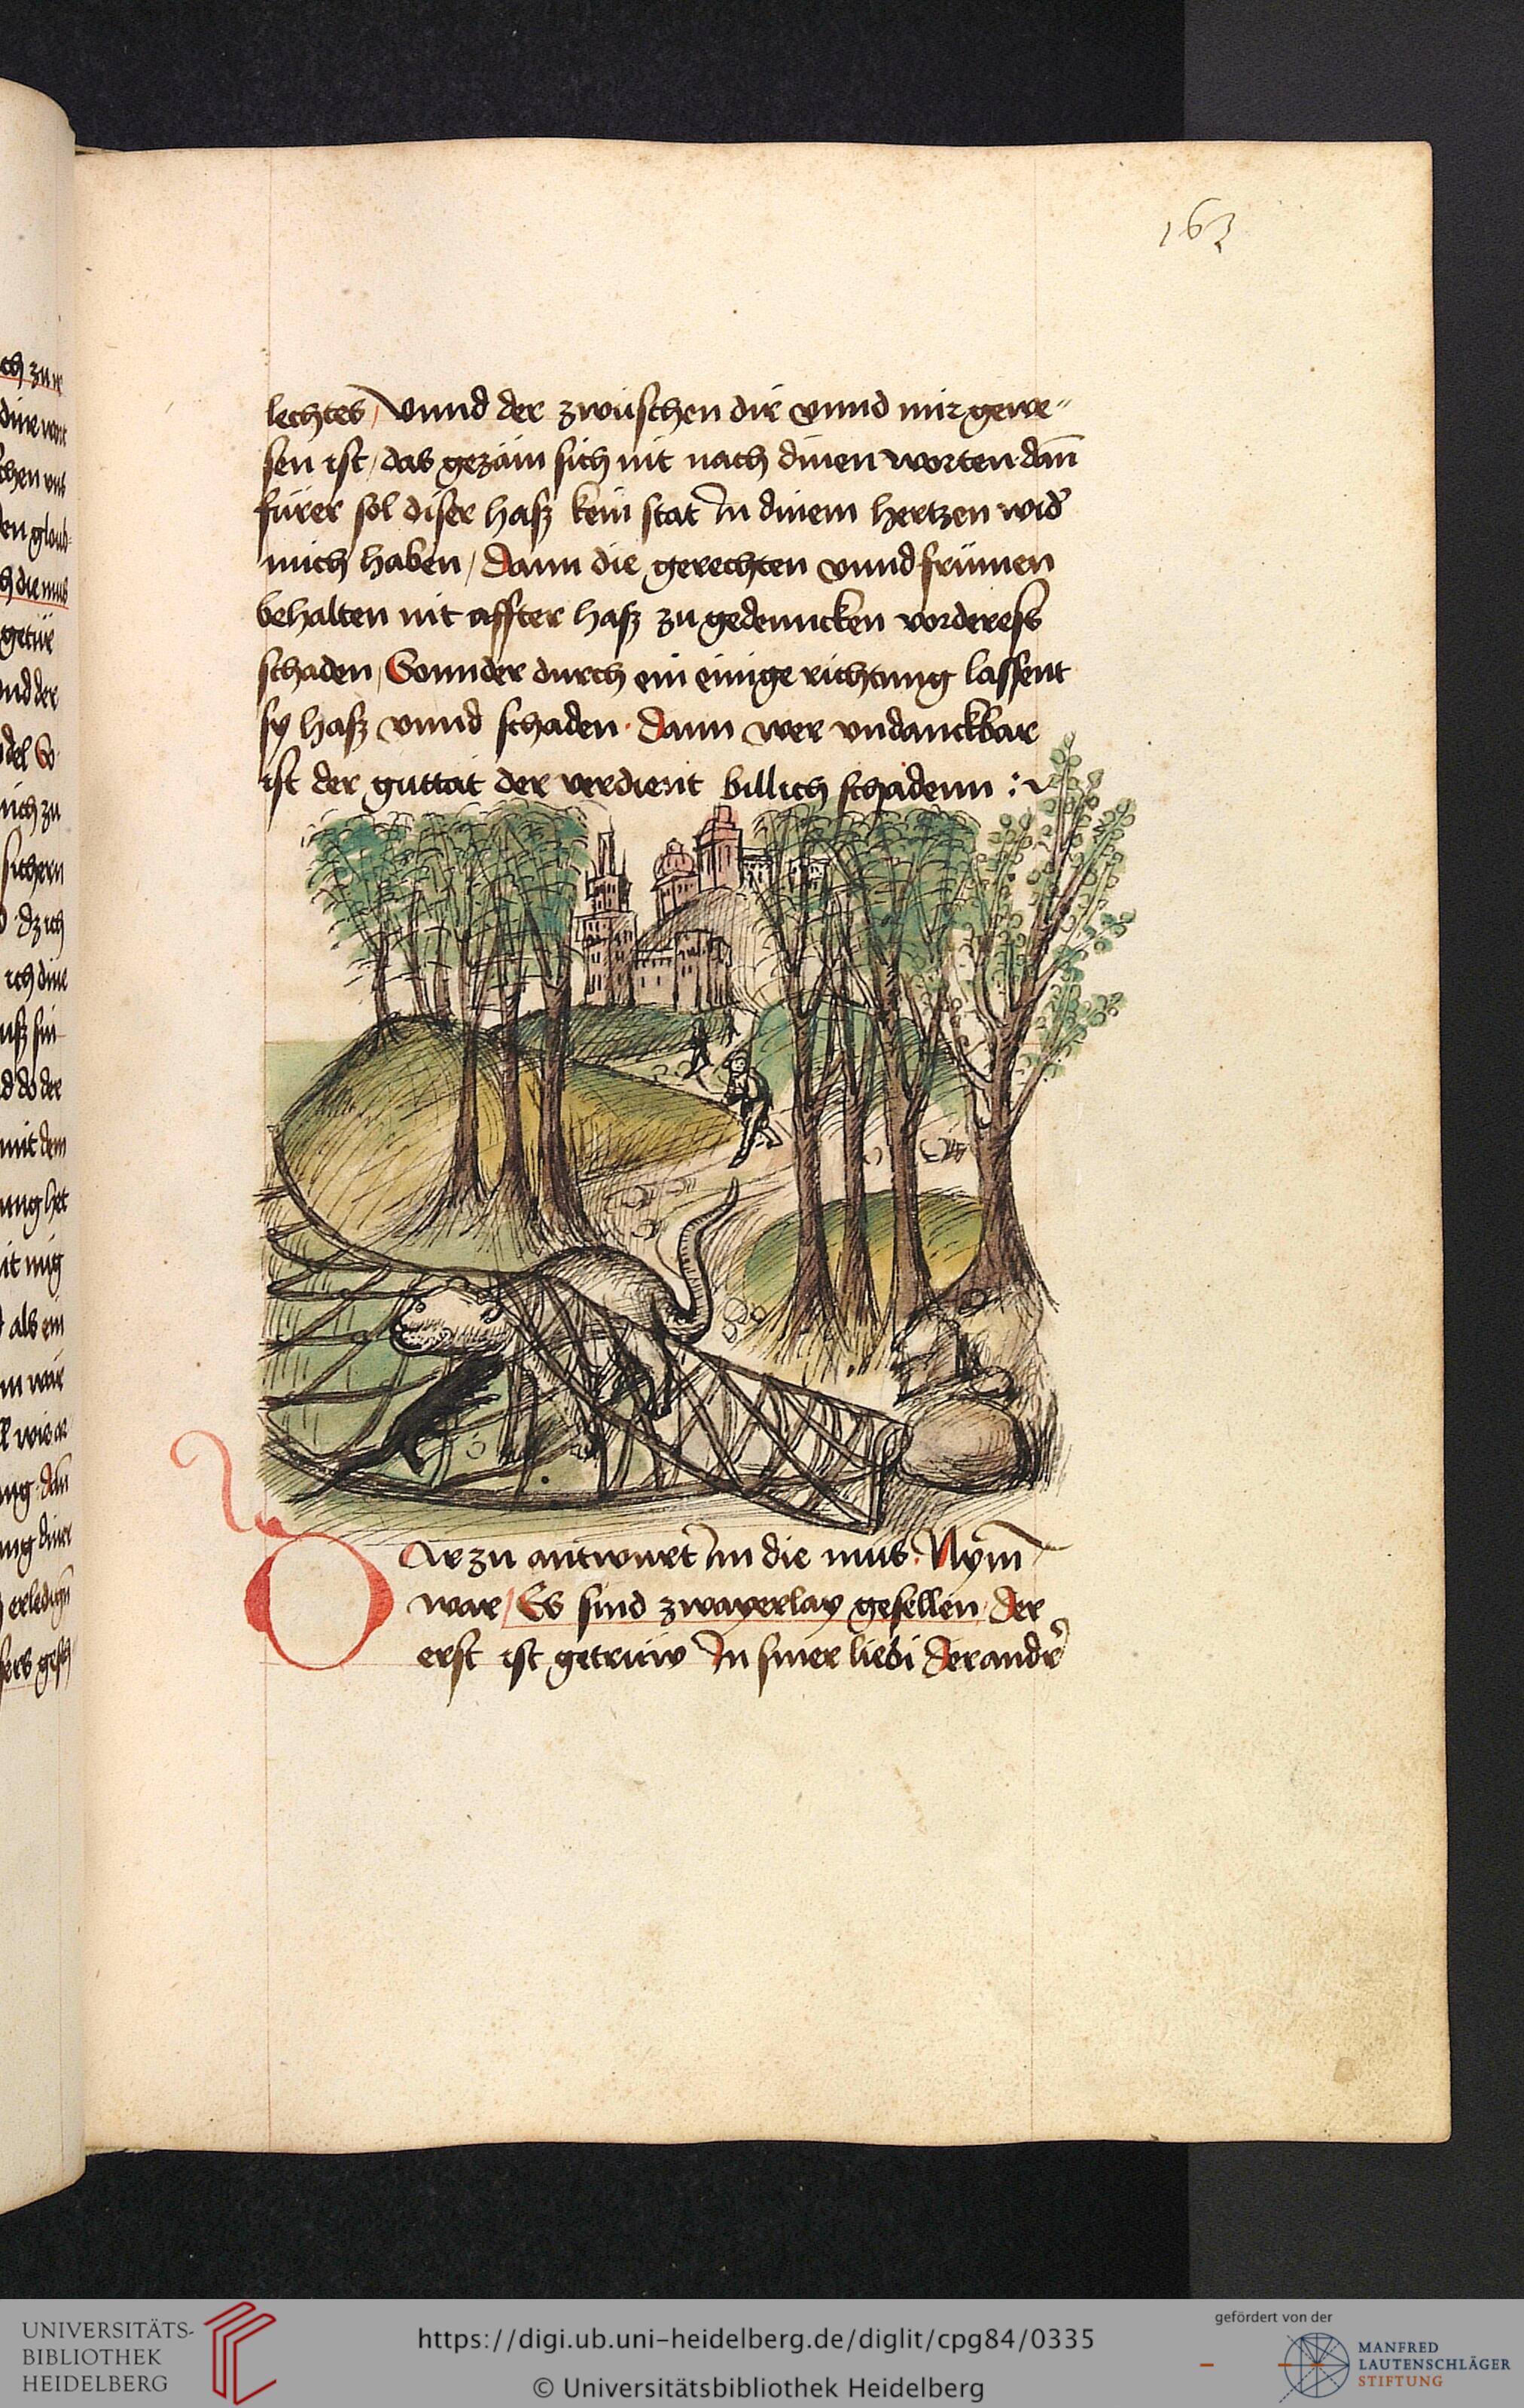 163
lechtes / vnnd der zwüschen dir vnnd mir gewe〃
sen ist / das gezäm sich nit nach dinen worten dañ
fürer sol diser hasz kein stat In dinem hertzen wid̾
mich haben / Dann die gerechten vnnd frümen
behalten nit affter hasz zu gedenncken vorderess
schaden / Sonnder durch ein einige richtung lassent
sy hasz vnnd schaden · Dann wer vndanckbar
ist der guttät der verdient billich schadenn :~
DAr zu antwurt Im die mus · Nym̃
war / Es sind zwayerlay gesellen / Der
erst ist getrüw In siner liebi Der andr̾
UNIVERSITÄTS-
BIBLIOTHEK
HEIDELBERG
https://digi.ub.uni-heidelberg.de/diglit/cpg84/0335
© Universitätsbibliothek Heidelberg
gefördert von der
MANFRED
LAUTENSCHLÄGER
STIFTUNG